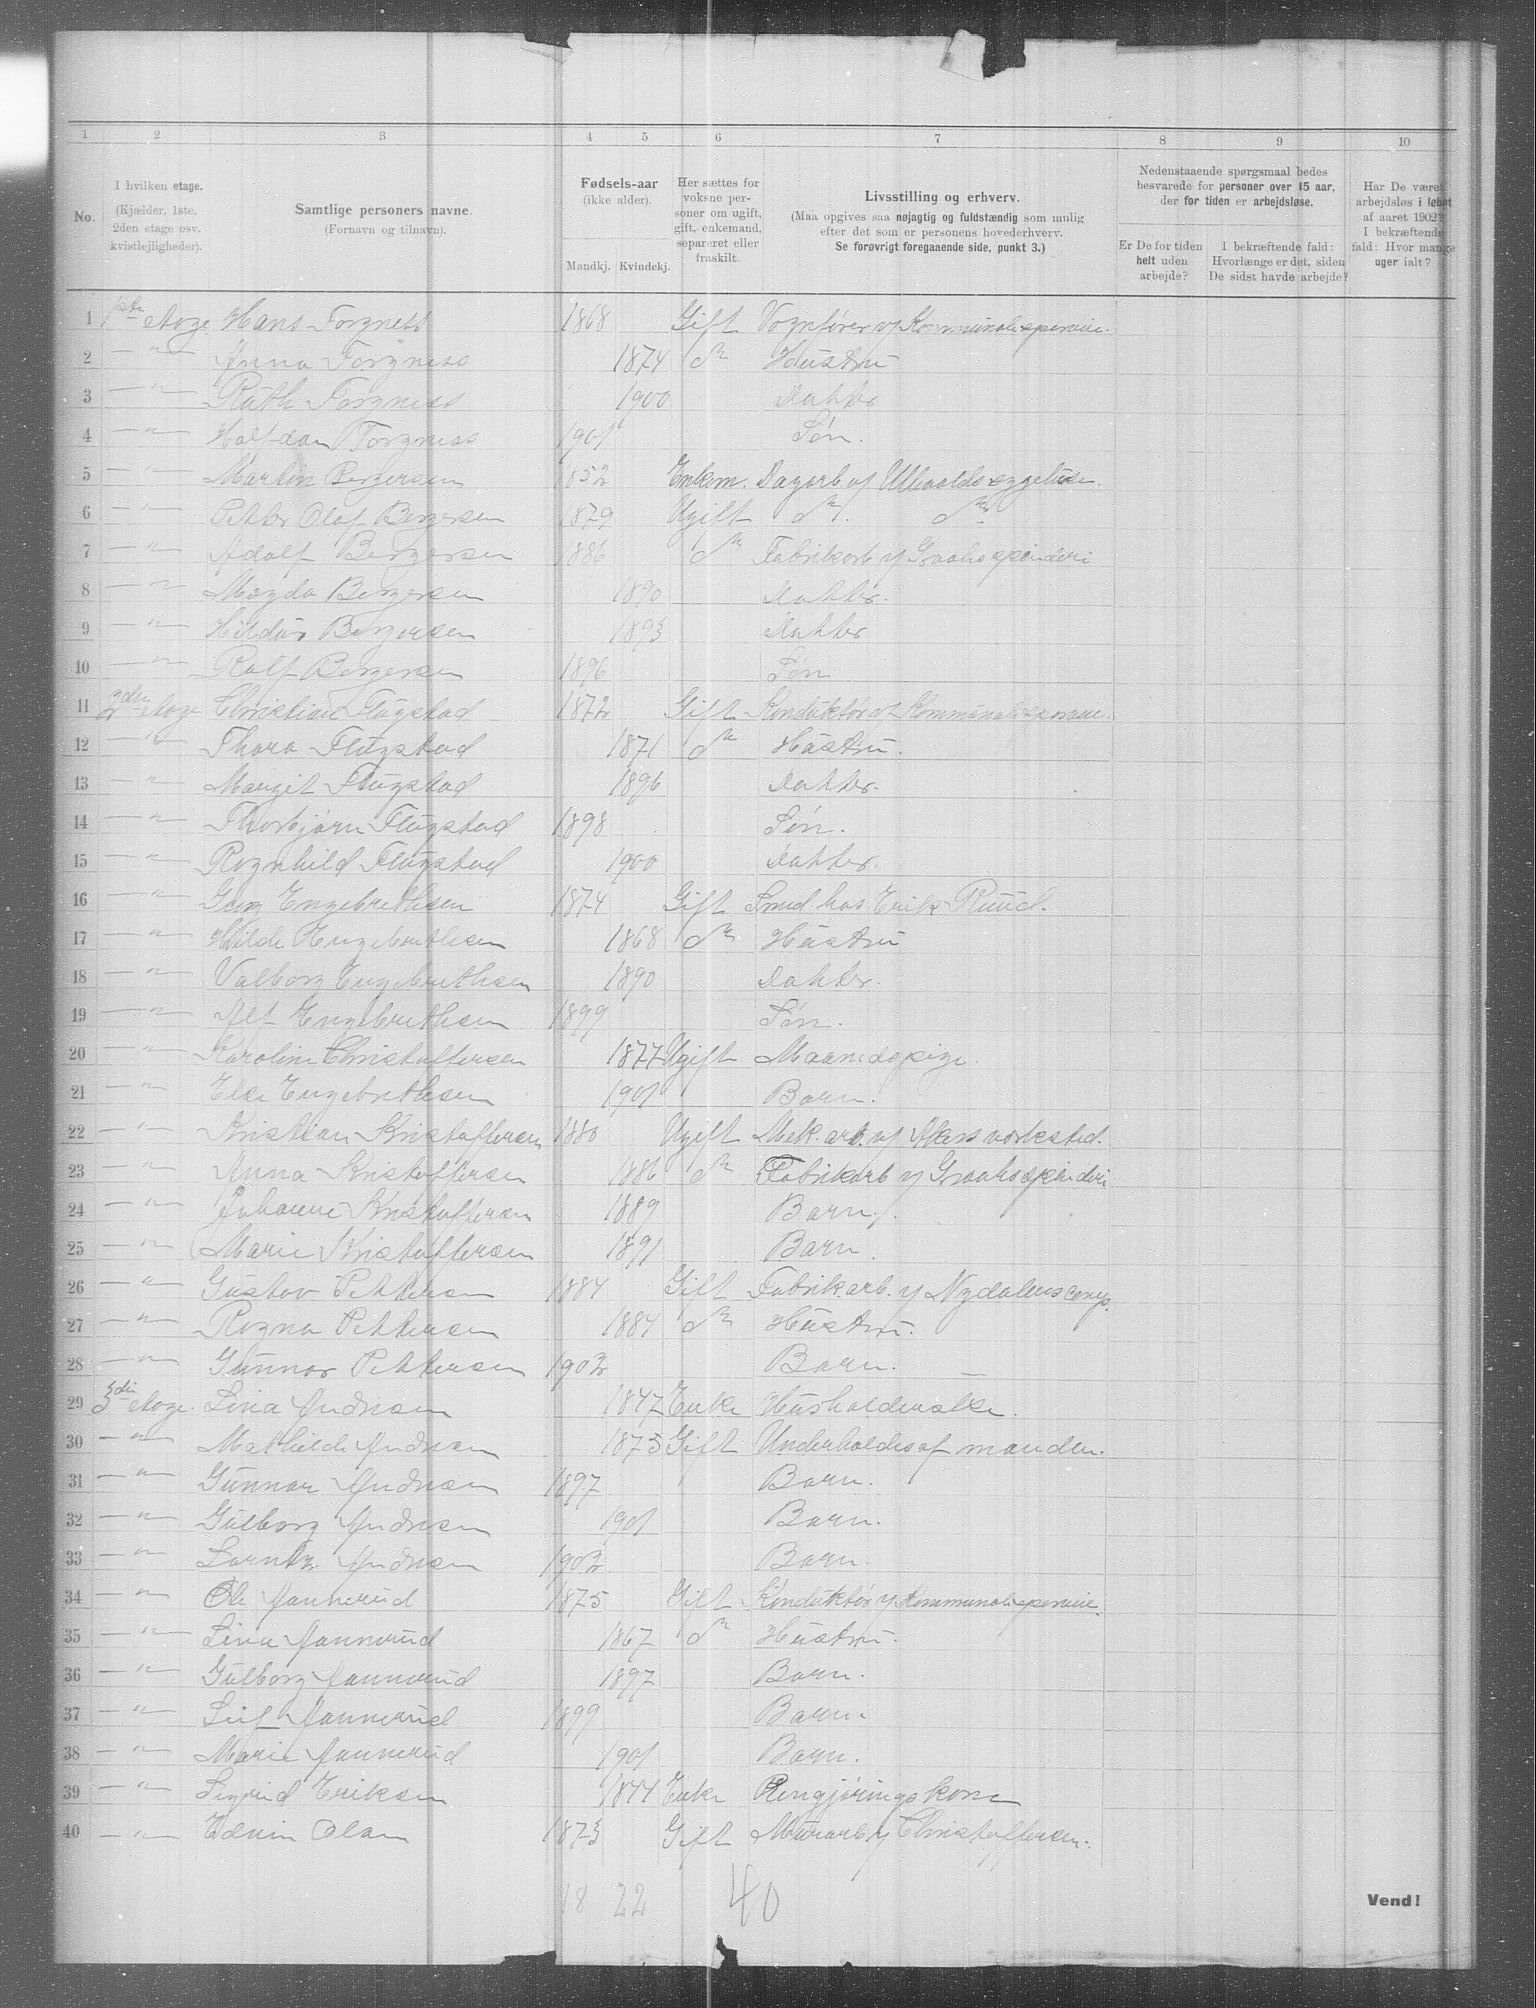 1 2 3 4 5 6 7 8 9 10
No. I hvilken etage. (Kjælder, 1ste, 2den etage osv. kvistlejligheder). Samtlige personers navne. (Fornavn og tilnavn). Fødsels-aar (ikke alder). Mandkj. Kvindekj. Her sættes for voksne personer om ugift, gift, enkemand, separeret eller fraskilt. Livsstilling og erhverv. (Maa opgives saa nøjagtig og fuldstændig som mulig efter det som er personens hovederhverv. Se forøvrigt foregaaende side, punkt 3.) Nedenstaaende spørgsmaal bedes besvarede for personer over 15 aar, der for tiden er arbejdsløse. Er De for tiden helt uden arbejde? I bekræftende fald: Hvorlænge er det, siden De sidst havde arbejde? Har De været arbejdsløs i løbet af aaret 1902? I bekræftende fald: Hvor mange uger ialt?
1 1ste etage Hans Forgness 1868 Gift Vognfører v/ Kommunale sporveie.
2 — " — Anna Forgness 1874 do Hustru
3 — " — Ruth Forgness 1900 Datter
4 — " — Halfdan Forgness 1901 Søn.
5 — " — Martin Bergersen 1852 Enkem. Dagarb v/ Ullevolds sygehus.
6 — " — Petter Olaf Bergersen 1879 Ugift do. do
7 — " — Adolf Bergersen 1886 do Fabrikarb v/ Graahs spinderi
8 — " — Magda Bergersen 1890 Datter.
9 — " — Hildur Bergersen 1893 Datter
10 — " — Rolf Bergersen 1896 Søn
11 2den etage Christian Flugstad 1872 Gift Konduktør v/ Kommunale sporveie.
12 — " — Thora Flugstad 1871 do Hustru.
13 — " — Margit Flugstad 1896 Datter.
14 — " — Thorbjørn Flugstad 1898 Søn.
15 — " — Ragnhild Flugstad 1900 Datter.
16 — " — Engebrethsen 1874 Gift Smed hos Erik Ruud.
17 — " — Hilda Engebrethsen 1868 do Hustru
18 — " — Valborg Engebrethsen 1890 Datter.
19 — " — Alf Engebrethsen 1899 Søn.
20 — " — Karoline Christoffersen 1877 Ugift Maanedspige.
21 — " — Else Engebrethsen 1901 Barn.
22 — " — Kristian Kristoffersen 1880 Ugift Mek. arb. v/ Akers værksted.
23 — " — Anna Kristoffersen 1886 do Fabrikarb v/ Graahs spinderi
24 — " — Johanne Kristoffersen 1889 Barn.
25 — " — Marie Kristoffersen 1891 Barn.
26 — " — Gustav Pettersen 1884 Gift Fabrikarb. v/ Nydalens comp.
27 — " — Ragna Pettersen 1884 do Hustru.
28 — " — Gunnar Pettersen 1902 Barn. —
29 3die etage. Lina Andresen 1847 Enke Husholderske.
30 — " — Mathilde Andresen 1875 Gift Underholdes af manden.
31 — " — Gunnar Andresen 1897 Barn.
32 — " — Gulborg Andresen 1901 Barn.
33 — " — Lorntz Andresen 1902 Barn.
34 — " — Ole Jannerud 1875 Gift Konduktør v/ Kommunale sporveie.
35 — " — Lina Jannerud 1867 do Hustru.
36 — " — Gulborg Jannerud 1897 Barn.
37 — " — Leif Jannerud 1899 Barn.
38 — " — Marie Jannerud 1901 Barn.
39 — " — Sigrid Eriksen 1844 Enke Rengjøringskone
40 — " — Edvin Olsen 1873 Gift Murarb v/ Christoffersen.
18 22 40
Vend!